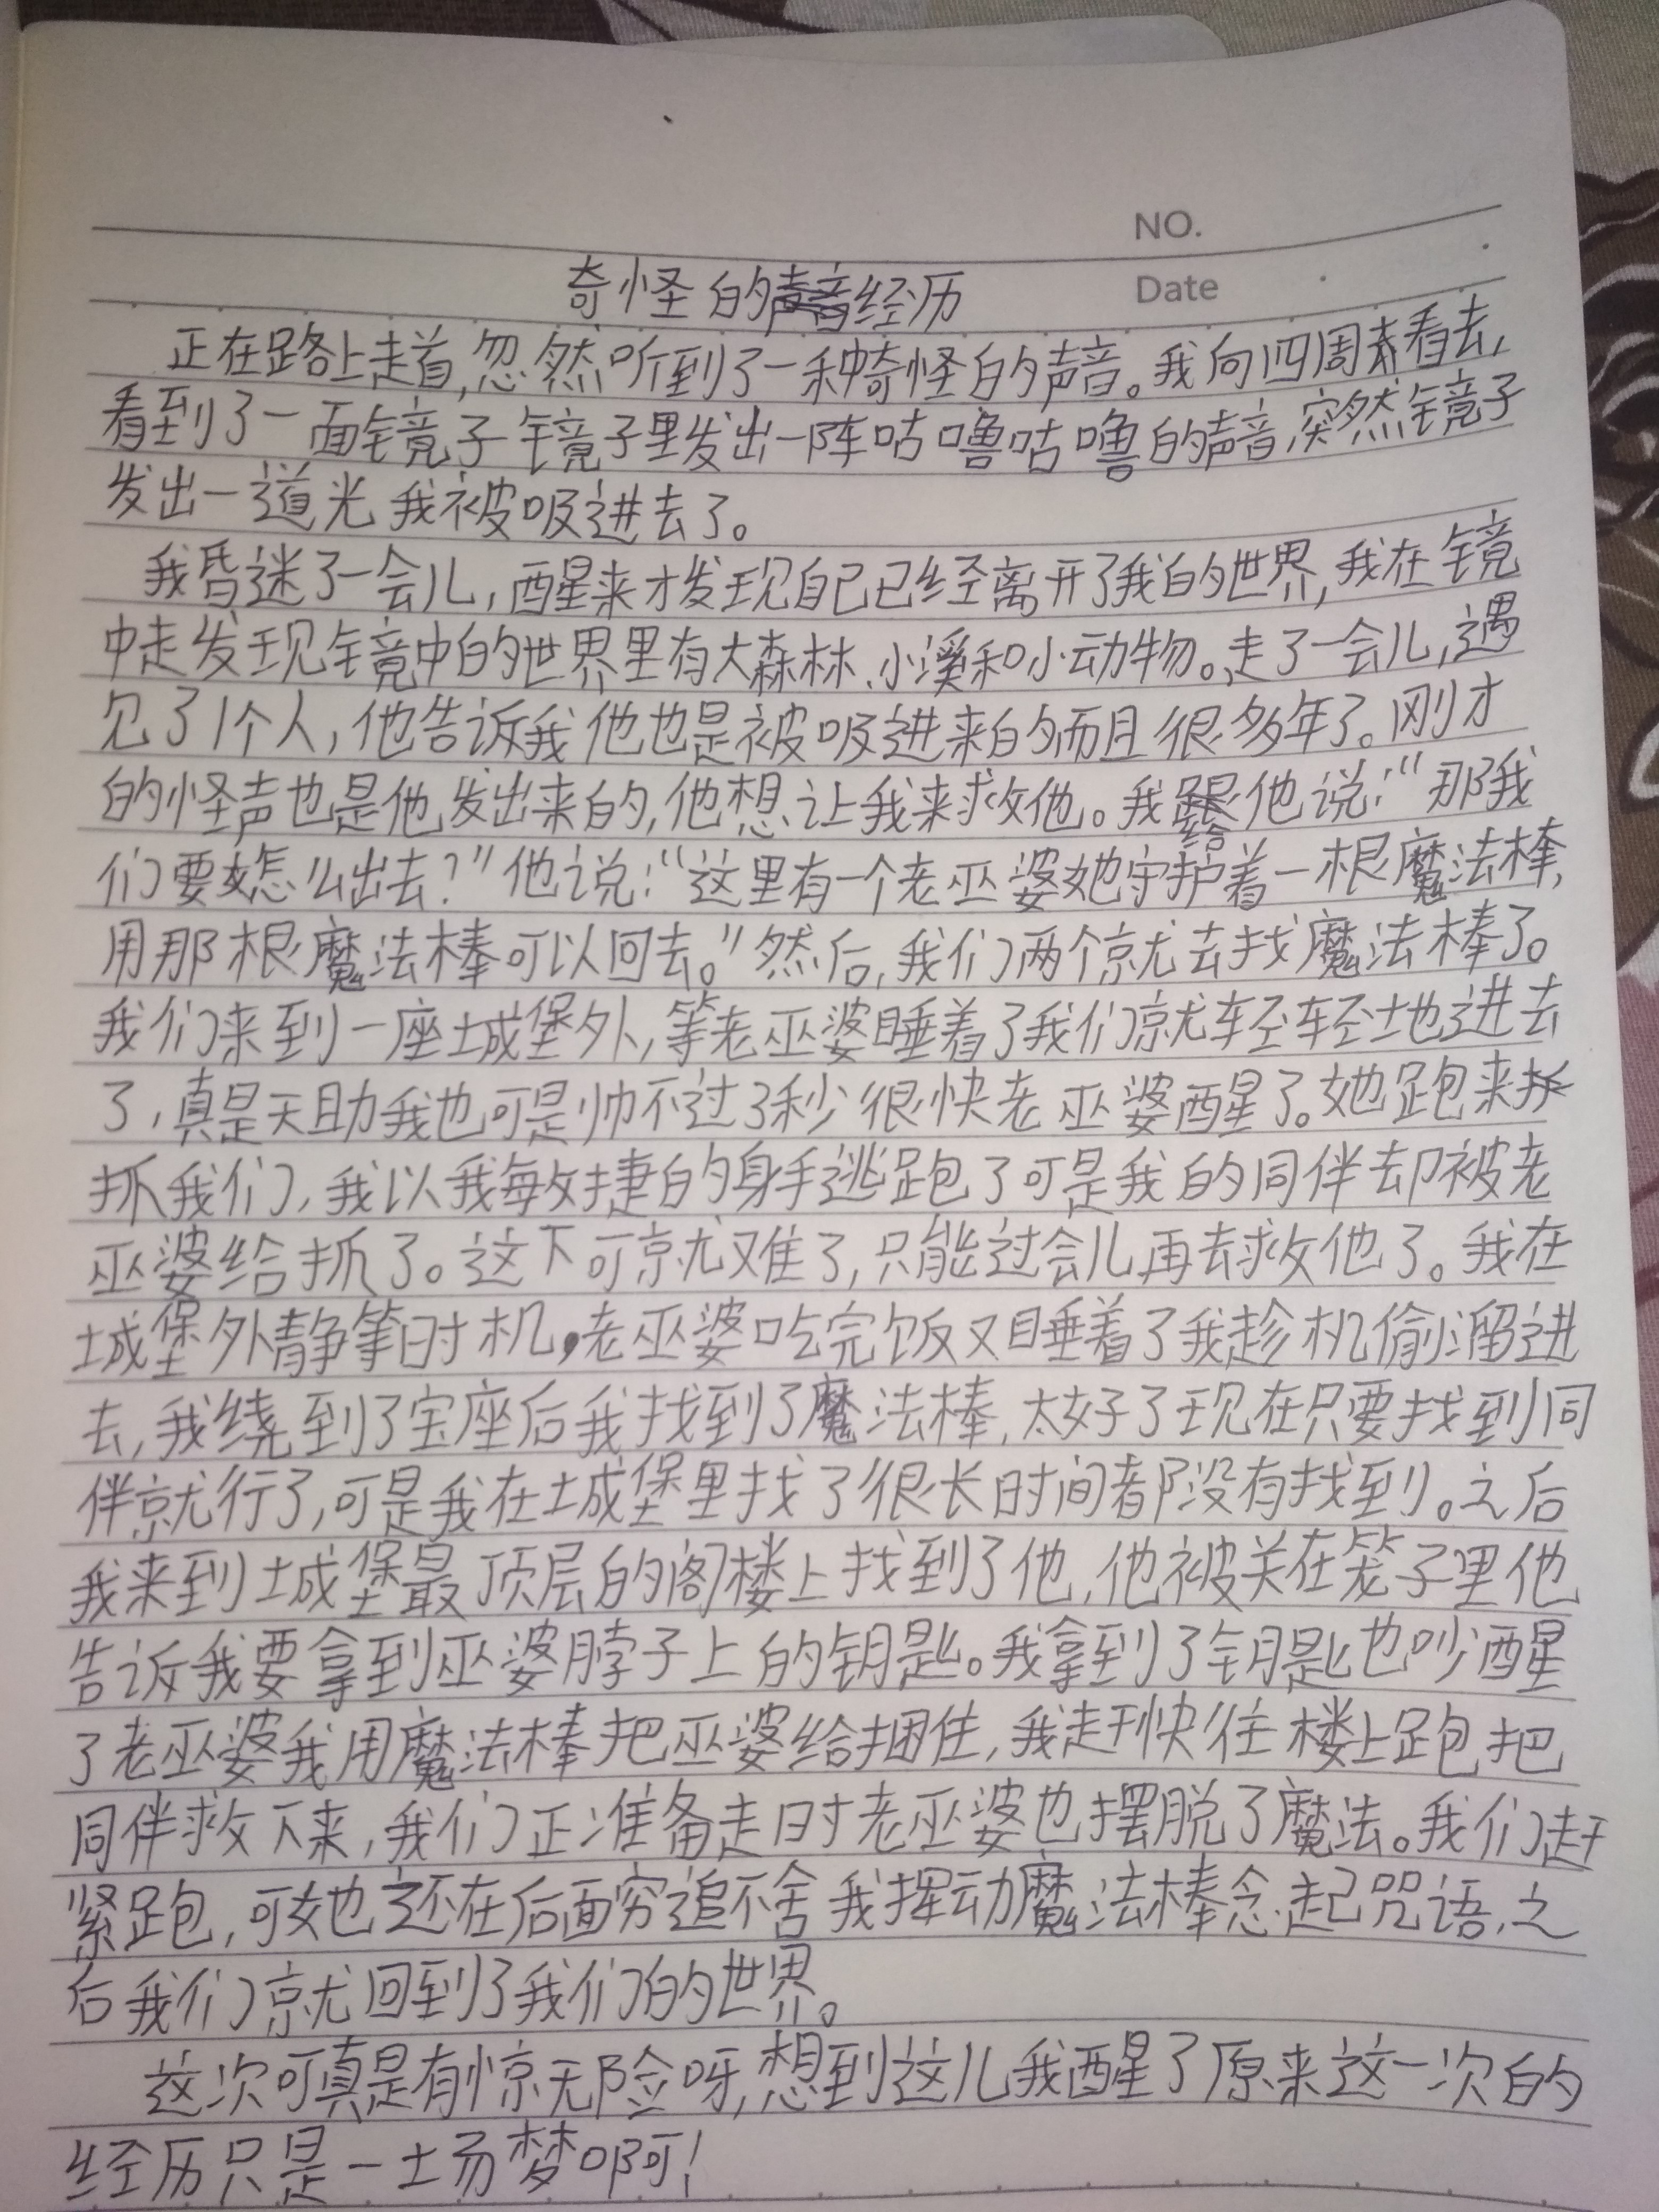 NO.
Date
奇怪的经历
正在路上走着,忽然听到了一种奇怪的声音。我向四周看去,
看到了一面镜子镜子里发出一阵咕噜咕噜的声音,突然镜子
发出一道光我被吸进去了。
我昏迷了一会儿,醒来才发现自己已经离开了我的世界,我在镜
中走发现镜中的世界里有大森林、小溪和小动物。走了一会儿,遇
见了1个人,他告诉我他也是被吸进来的而且很多年了。刚才
的怪声也是他发出来的,他想让我来救他。我给他说:“那我
们要怎么出去?”他说:“这里有一个老巫婆她守护着一根魔法棒,
用那根魔法棒可以回去。”然后,我们两个就去找魔法棒了。
我们来到一座城堡外,等老巫婆睡着了我们就轻轻地进去
了,真是天助我也可是帅不过3秒很快老巫婆醒了。她跑来
抓我们,我以我敏捷的身手逃跑了可是我的同伴却被老
巫婆给抓了。这下可就难了,只能过会儿再去救他了。我在
城堡外静等时机,老巫婆吃完饭又睡着了我趁机偷溜进
去,我绕到了宝座后我找到了魔法棒,太好了现在只要找到同
伴就行了,可是我在城堡里找了很长时间都没有找到。之后
我来到城堡最顶层的阁楼上找到了他,他被关在笼子里他
告诉我要拿到巫婆脖子上的钥匙。我拿到了钥匙也吵醒
了老巫婆我用魔法棒把巫婆给捆住,我赶快往楼上跑把
同伴救下来,我们正准备走时老巫婆也摆脱了魔法。我们赶
紧跑,可她还在后面穷追不舍我挥动魔法棒念起咒语,之
后我们就回到了我们的世界。
这次可真是有惊无险呀,想到这儿我醒了原来这一次的
经历只是一场梦啊!